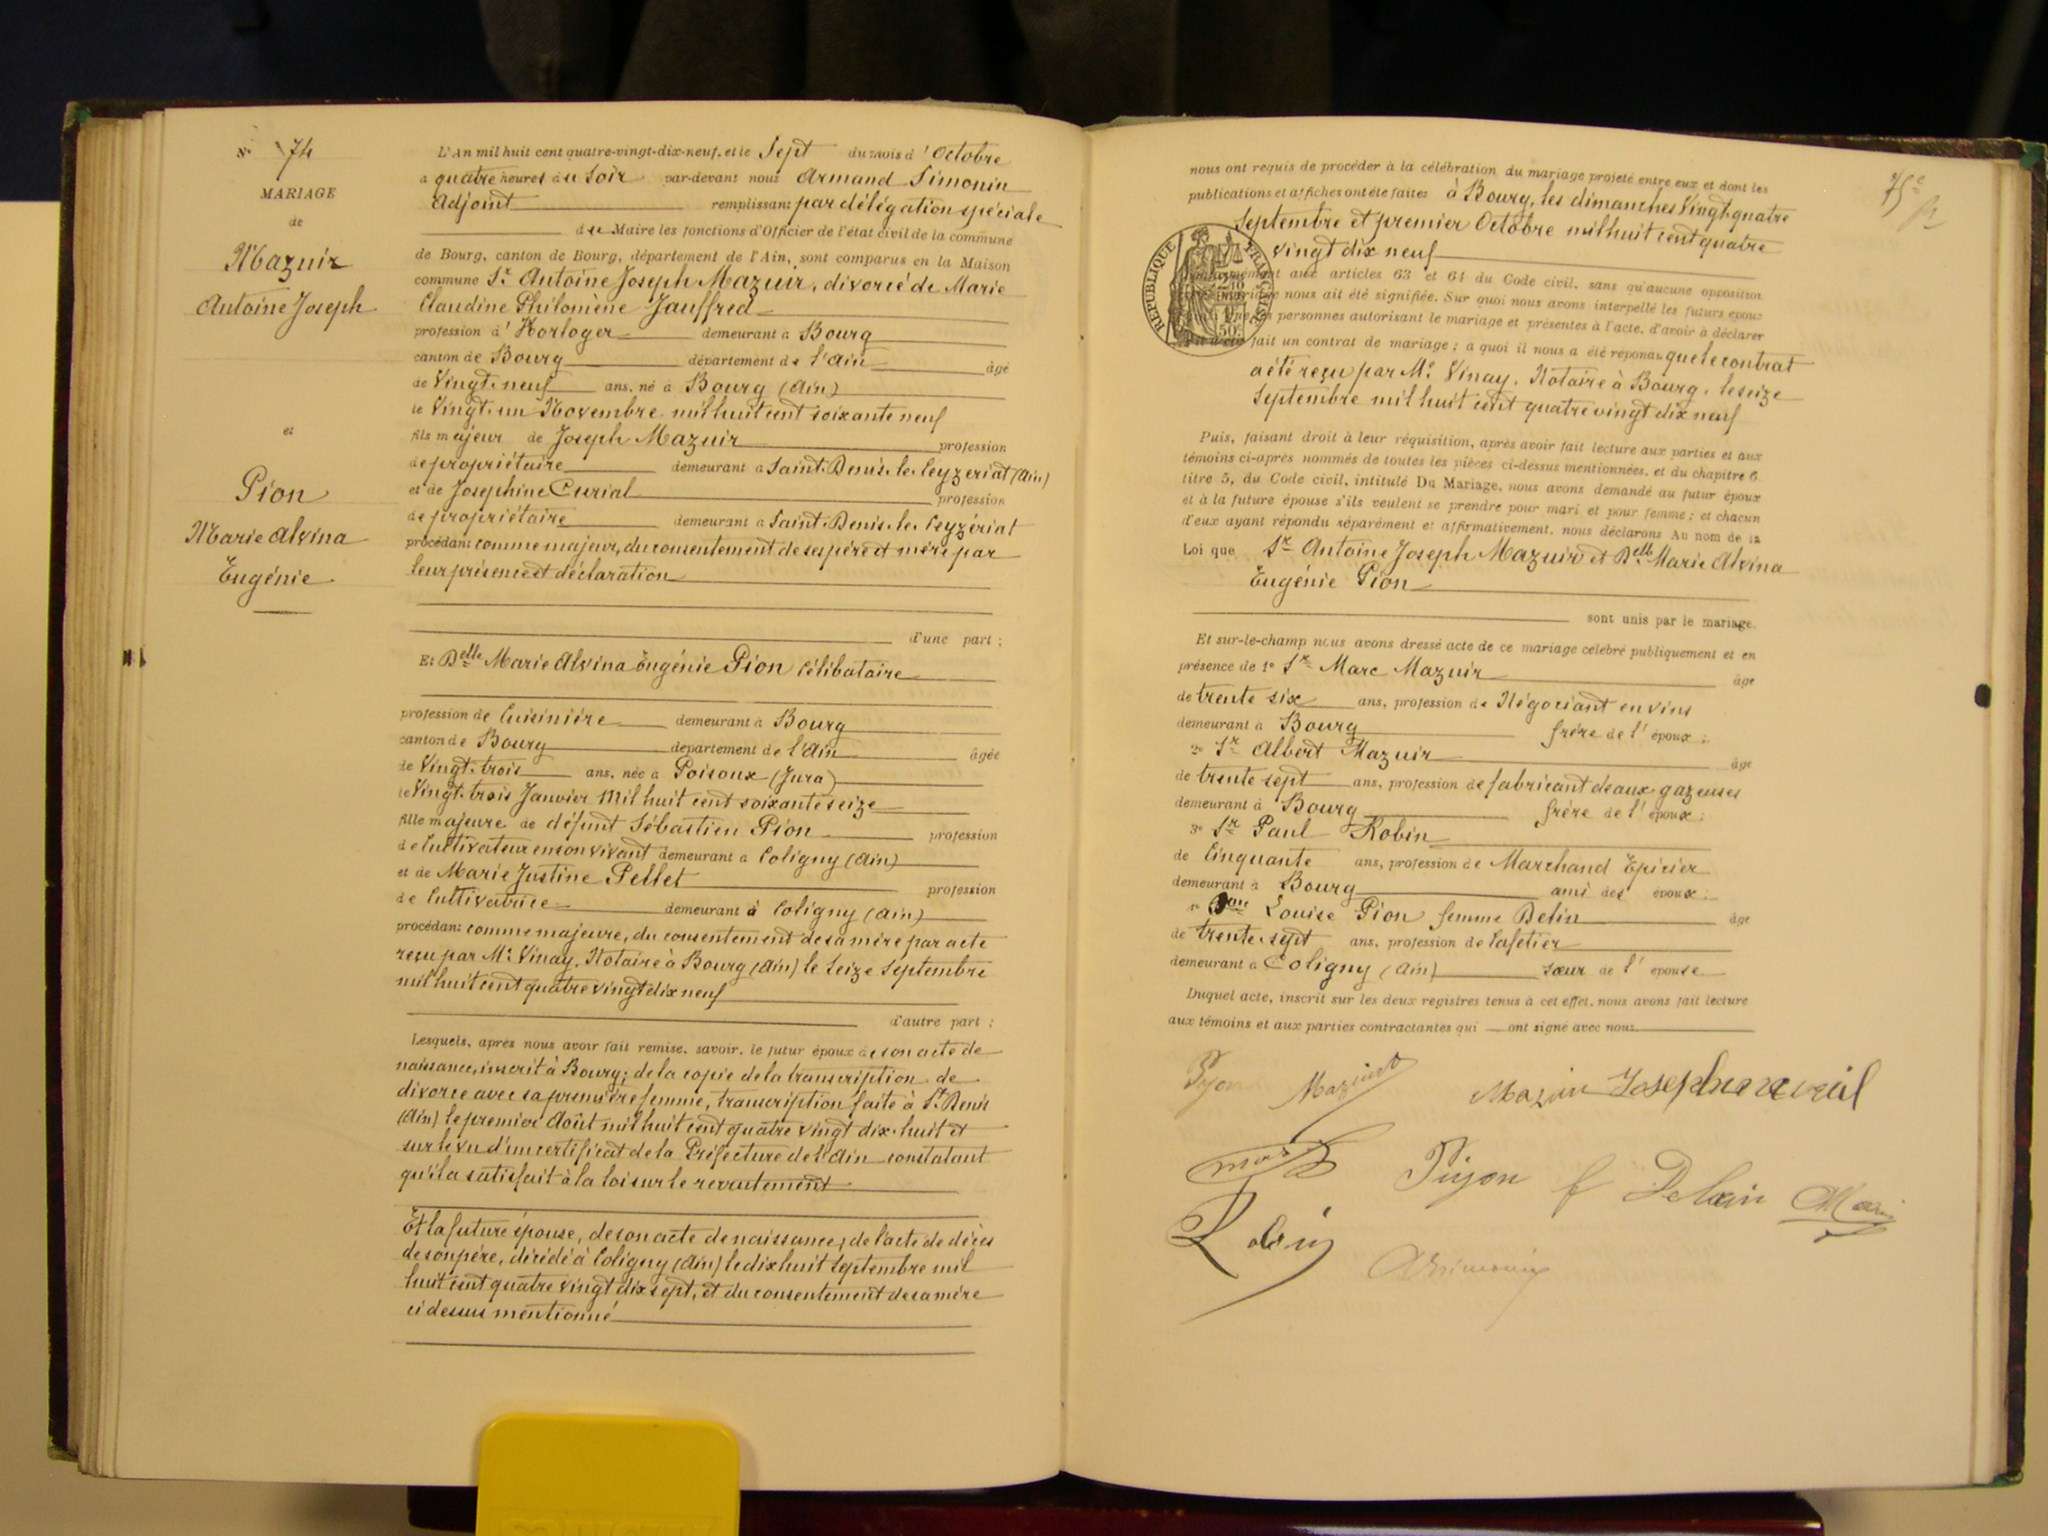 No 74
MARIAGE
de
Mazuir
Antoine Joseph
et
Pion
Marie Alvina
Eugénie
L'An mil huit cent quatre-vingt-dix-neuf, et le Sept du mois d'Octobre
à quatre heures du Soir par-devant nous Armand Simonin
Adjoint remplissant par délégation spéciale
du Maire les fonctions d'Officier de l'état civil de la commune
de Bourg, canton de Bourg, département de l'Ain, sont comparus en la Maison
commune Sr Antoine Joseph Mazuir, divorcé de Marie
Claudine Philomène Jauffred
profession d'Horloger demeurant à Bourg
canton de Bourg département de l'Ain âgé
de Vingt-neuf ans, né à Bourg (Ain)
le Vingt-un Novembre mil huit cent soixante neuf
fils majeur de Joseph Mazuir profession
de propriétaire demeurant à Saint-Denis-le-Ceyzeriat (Ain)
et de Josephine Curial profession
de propriétaire demeurant à Saint-Denis-le-Ceyzériat
procédant comme majeur, du consentement de ses père et mère par
leur présence et déclaration
d'une part ;
Et Delle Marie Alvina Eugénie Pion Célibataire
profession de Cuisinière demeurant à Bourg
canton de Bourg département de l'Ain âgée
de Vingt-trois ans, née à Poisoux (Jura)
le Vingt-trois Janvier Mil huit cent soixante seize
fille majeure de défunt Sébastien Pion profession
de Cultivateur en son vivant demeurant à Coligny (Ain)
et de Marie Justine Pellet profession
de Cultivatrice demeurant à Coligny (Ain)
procédant comme majeure, du consentement de sa mère par acte
reçu par Me Vinay, Notaire à Bourg (Ain) le Seize Septembre
mil huit cent quatre vingt dix neuf
d'autre part ;
Lesquels, après nous avoir fait remise, savoir, le futur époux de son acte de
naissance, inscrit à Bourg ; de la copie de la transcription de
divorce avec sa première femme, transcription faite à St Denis
(Ain) le premier Août mil huit cent quatre vingt dix-huit et
sur le vu d'un certificat de la Préfecture de l'Ain constatant
qu'il a satisfait à la loi sur le recrutement
Et la future épouse, de son acte de naissance, de l'acte de décès
de son père, décédé à Coligny (Ain) le dix huit Septembre mil
huit cent quatre vingt dix sept, et du consentement de sa mère
ci dessus mentionné
75e
nous ont requis de procéder à la célébration du mariage projeté entre eux et dont les
publications et affiches ont été faites à Bourg, les dimanches Vingt-quatre
Septembre et premier Octobre mil huit cent quatre
vingt dix neuf
REPUBLIQUE FRANÇAISE
aux articles 63 et 64 du Code civil, sans qu'aucune opposition
mariage nous ait été signifiée. Sur quoi nous avons interpellé les futurs époux
personnes autorisant le mariage et présentes à l'acte, d'avoir à déclarer
fait un contrat de mariage ; à quoi il nous a été répondu que le contrat
a été reçu par Me Vinay, Notaire à Bourg, le seize
Septembre mil huit cent quatre vingt dix neuf
Puis, faisant droit à leur réquisition, après avoir fait lecture aux parties et aux
témoins ci-après nommés de toutes les pièces ci-dessus mentionnées, et du chapitre 6
titre 5, du Code civil, intitulé Du Mariage, nous avons demandé au futur époux
et à la future épouse s'ils veulent se prendre pour mari et pour femme ; et chacun
d'eux ayant répondu séparément et affirmativement, nous déclarons Au nom de la
Loi que Sr Antoine Joseph Mazuir et Delle Marie Alvina
Eugénie Pion
sont unis par le mariage.
Et sur-le-champ nous avons dressé acte de ce mariage célébré publiquement et en
présence de 1o Sr Marc Mazuir âgé
de trente six ans, profession de Négociant en vins
demeurant à Bourg frère de l'époux ;
2o Sr Albert Mazuir âgé
de trente sept ans, profession de fabricant d'eaux gazeuses
demeurant à Bourg frère de l'époux ;
3o Sr Paul Robin
de Cinquante ans, profession de Marchand Epicier
demeurant à Bourg ami des époux ;
Dme Louise Pion femme Delin âgé
de trente-sept ans, profession de Cafetier
demeurant à Coligny (Ain) sœur de l'épouse
Duquel acte, inscrit sur les deux registres tenus à cet effet, nous avons fait lecture
aux témoins et aux parties contractantes qui ont signé avec nous
Mazuir
Mazuir Josephine
Pijon f
Robin
ASimonin